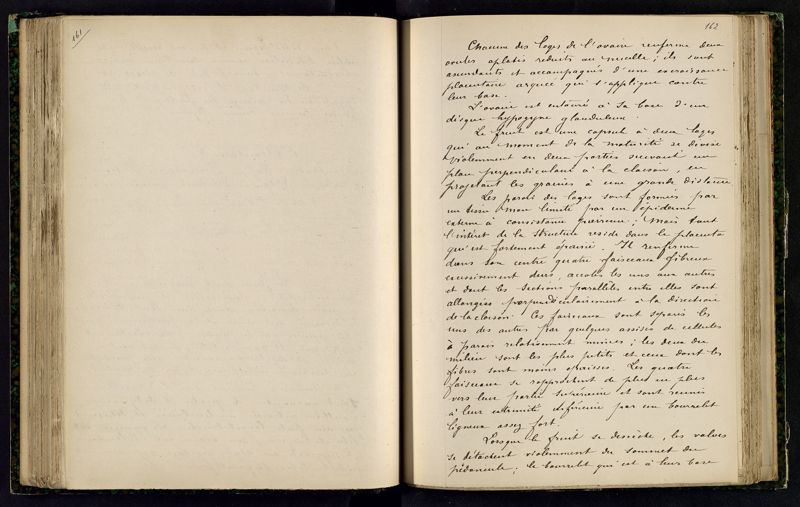 161
162
Chacune des loges de l'ovaire renferme deux
ovules aplatis réduits au nucelle ; ils sont
ascendants et accompagnés d'une excroissance
placentaire arquée qui s'applique contre
leur base.
L'ovaire est entouré à sa base d'un
disque hypogyne glanduleux.
Le fruit est une capsule à deux loges
qui au moment de la maturité se divise
violemment en deux parties suivant un
plan perpendiculaire à la cloison, en
projetant les graines à une grande distance
Les parois des loges sont formées par
un tissu mou limité par un épiderme
externe à consistance ; Mais tout
l'intérêt de la structure réside dans le placenta
qui est fortement épaissi. Il renferme
dans son centre quatre faisceaux fibreux
excessivement durs, accolés les uns aux autres
et dont les sections parallèles entre elles sont
allongées perpendiculairement à la direction
de la cloison. Ces faisceaux sont séparés les
uns des autres par quelques assises de cellules
à parois relativement minces ; les deux du
milieu sont les plus petits et ceux dont les
fibres sont moins épaisses. Les quatre
faisceaux se rapprochent de plus en plus
vers leur partie supérieure et sont réunis
à leur extrémité inférieure par un bourrelet
ligneux assez fort.
Lorsque le fruit se dessèche, les valves
se détachent violemment du sommet du
pédoncule ; le bourrelet qui est à leur base